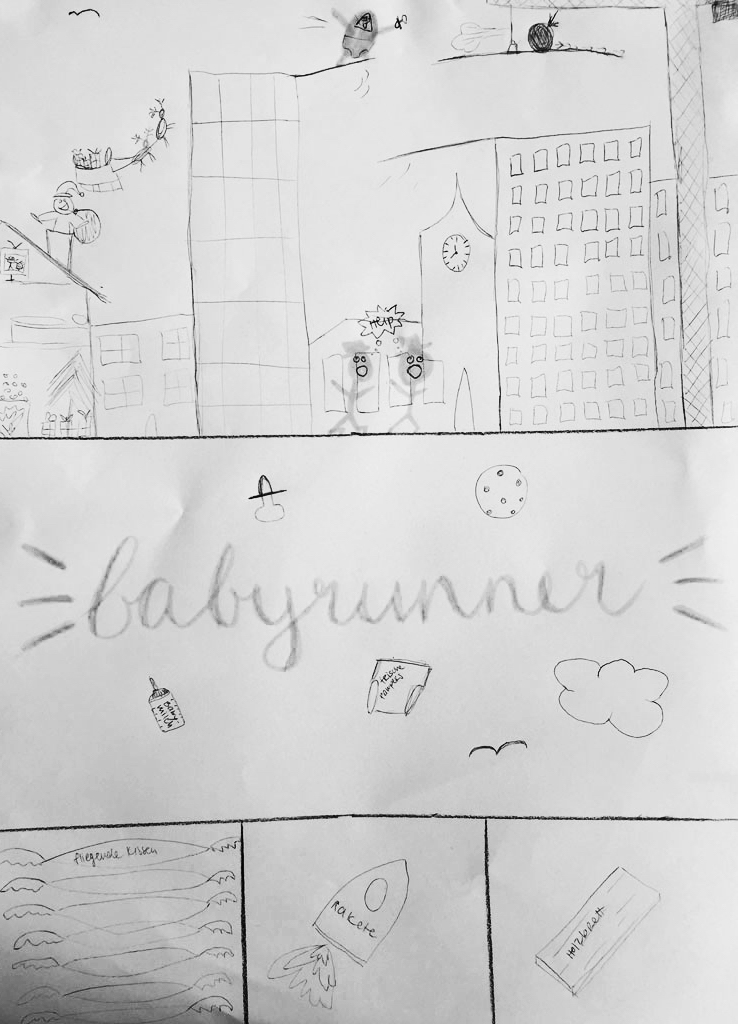 HELP
babyrunner
Baby
milch
frische
pampers
fliegende Kissen
Rakete
Holzbrett